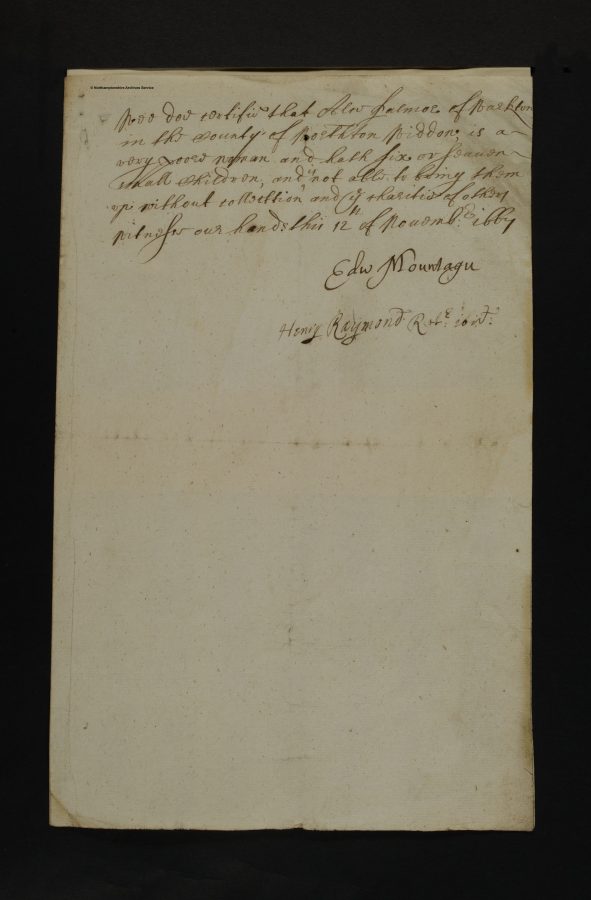 © Northamptonshire Archives Service
Wee doe certifie that of
in the County of Northton Widdow, is a
very poore woman and hath six or seaven
small Children, and is not able to bring them
up without collection, and ye charitie of others
witness our hands this 12th of Novembr 1667
Edw Mountagu
Henry Raymond